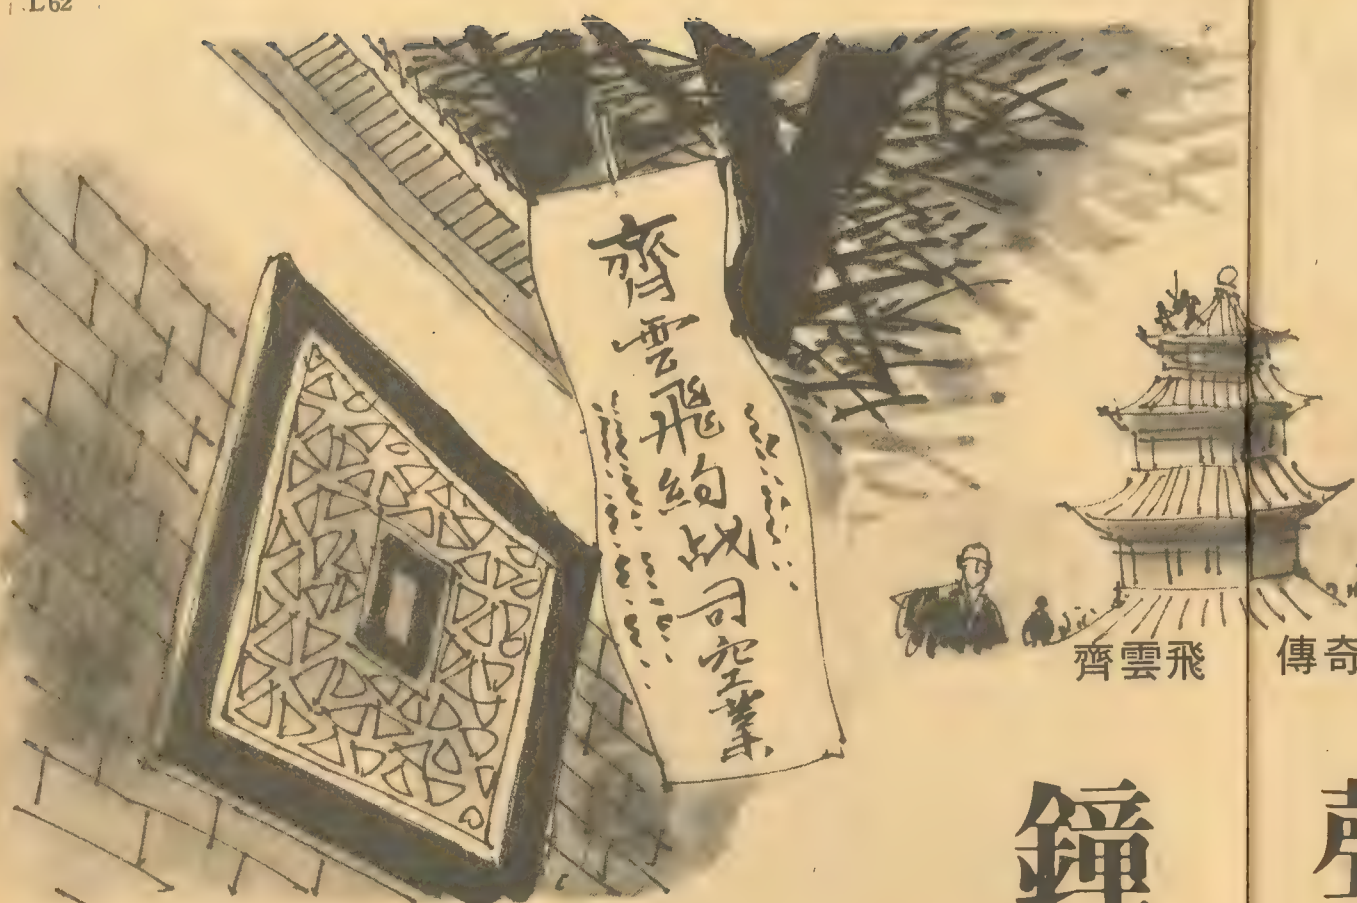 L62
齊雲飛約战司空業
齊雲飛 傳奇
鐘